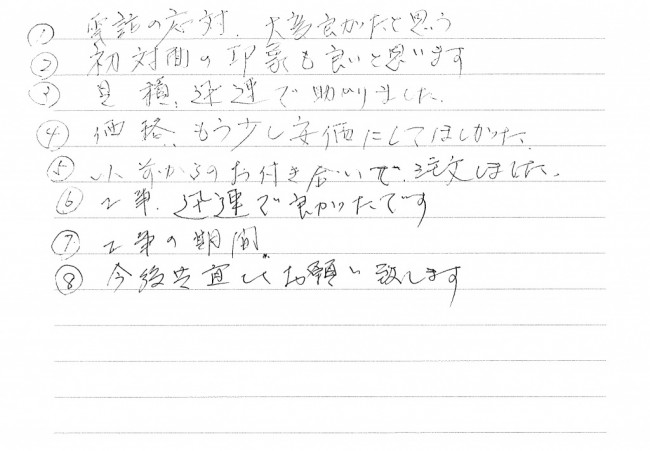 ① 電話の応対、大変良かったと思う
② 初対面の印象も良いと思います
③ 見積、迅速で助かりました。
④ 価格、もう少し安価にしてほしかった。
⑤ 以前からのお付き合いで、注文しました。
⑥ 工事、迅速で良かったです
⑦ 工事の期間
⑧ 今後共宜しくお願い致します